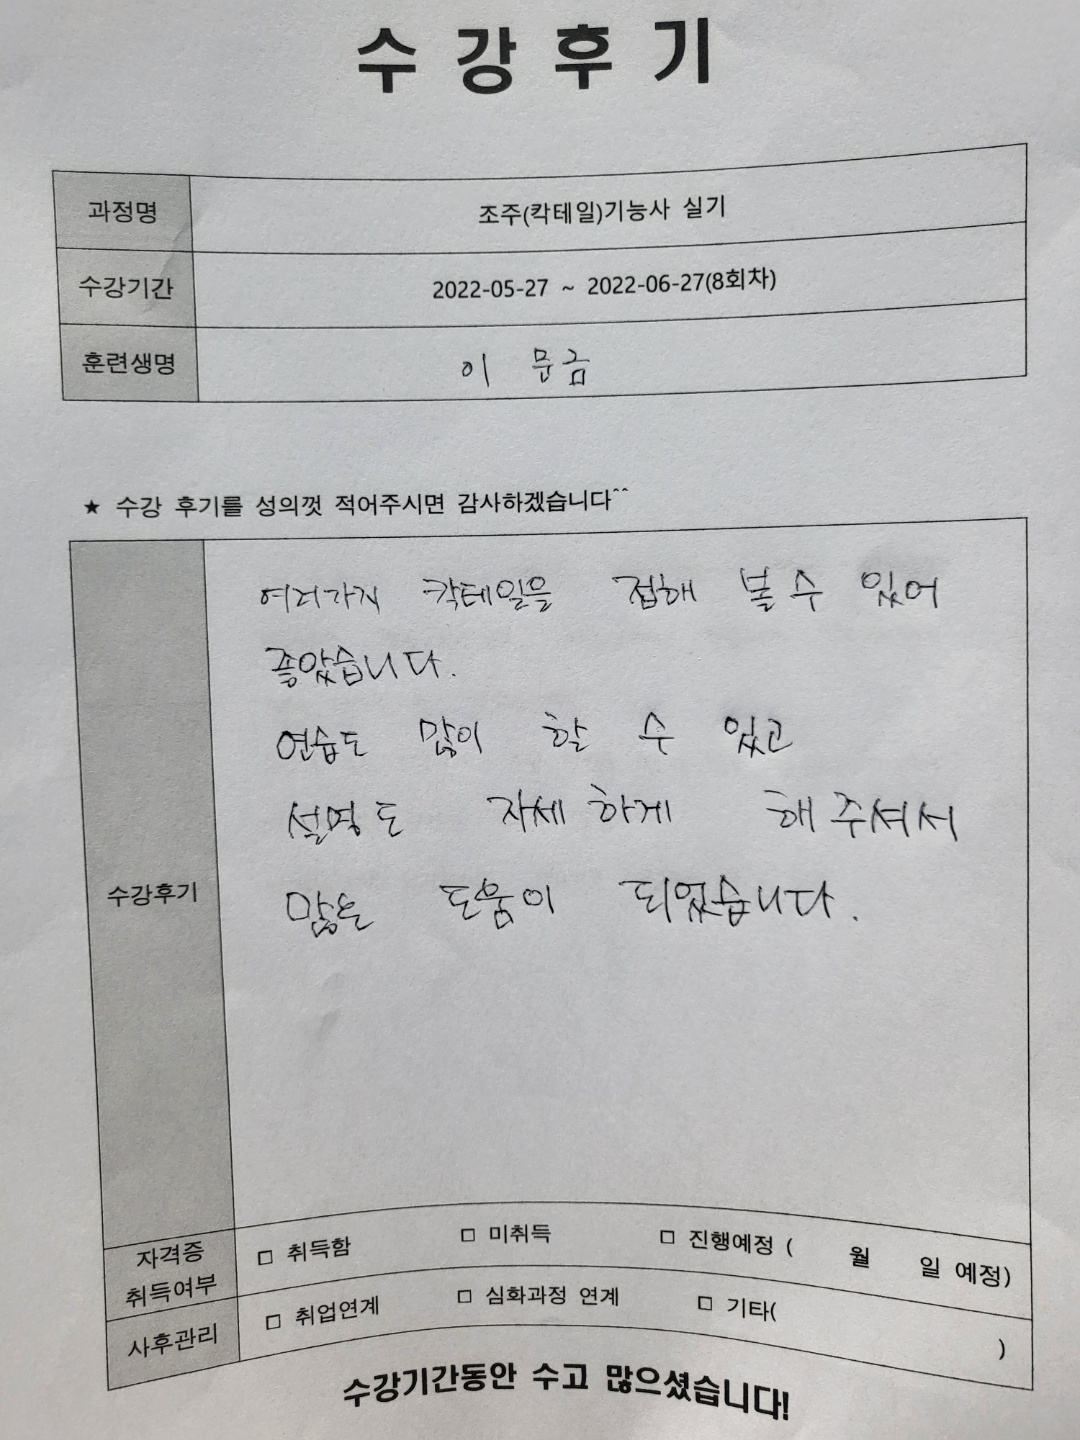 수강후기
과정명 조주(칵테일)기능사 실기
수강기간 2022-05-27 ~ 2022-06-27(8회차)
훈련생명 이 문금
★ 수강 후기를 성의껏 적어주시면 감사하겠습니다^^
여러가지 칵테일을 접해 볼 수 있어
좋았습니다.
연습도 많이 할 수 있고
설명도 자세하게 해주셔서
수강후기
많은 도움이 되었습니다.
자격증 취득여부 □ 취득함 □ 미취득 □ 진행예정 ( 월 일 예정)
사후관리 □ 취업연계 □ 심화과정 연계 □ 기타( )
수강기간동안 수고 많으셨습니다!